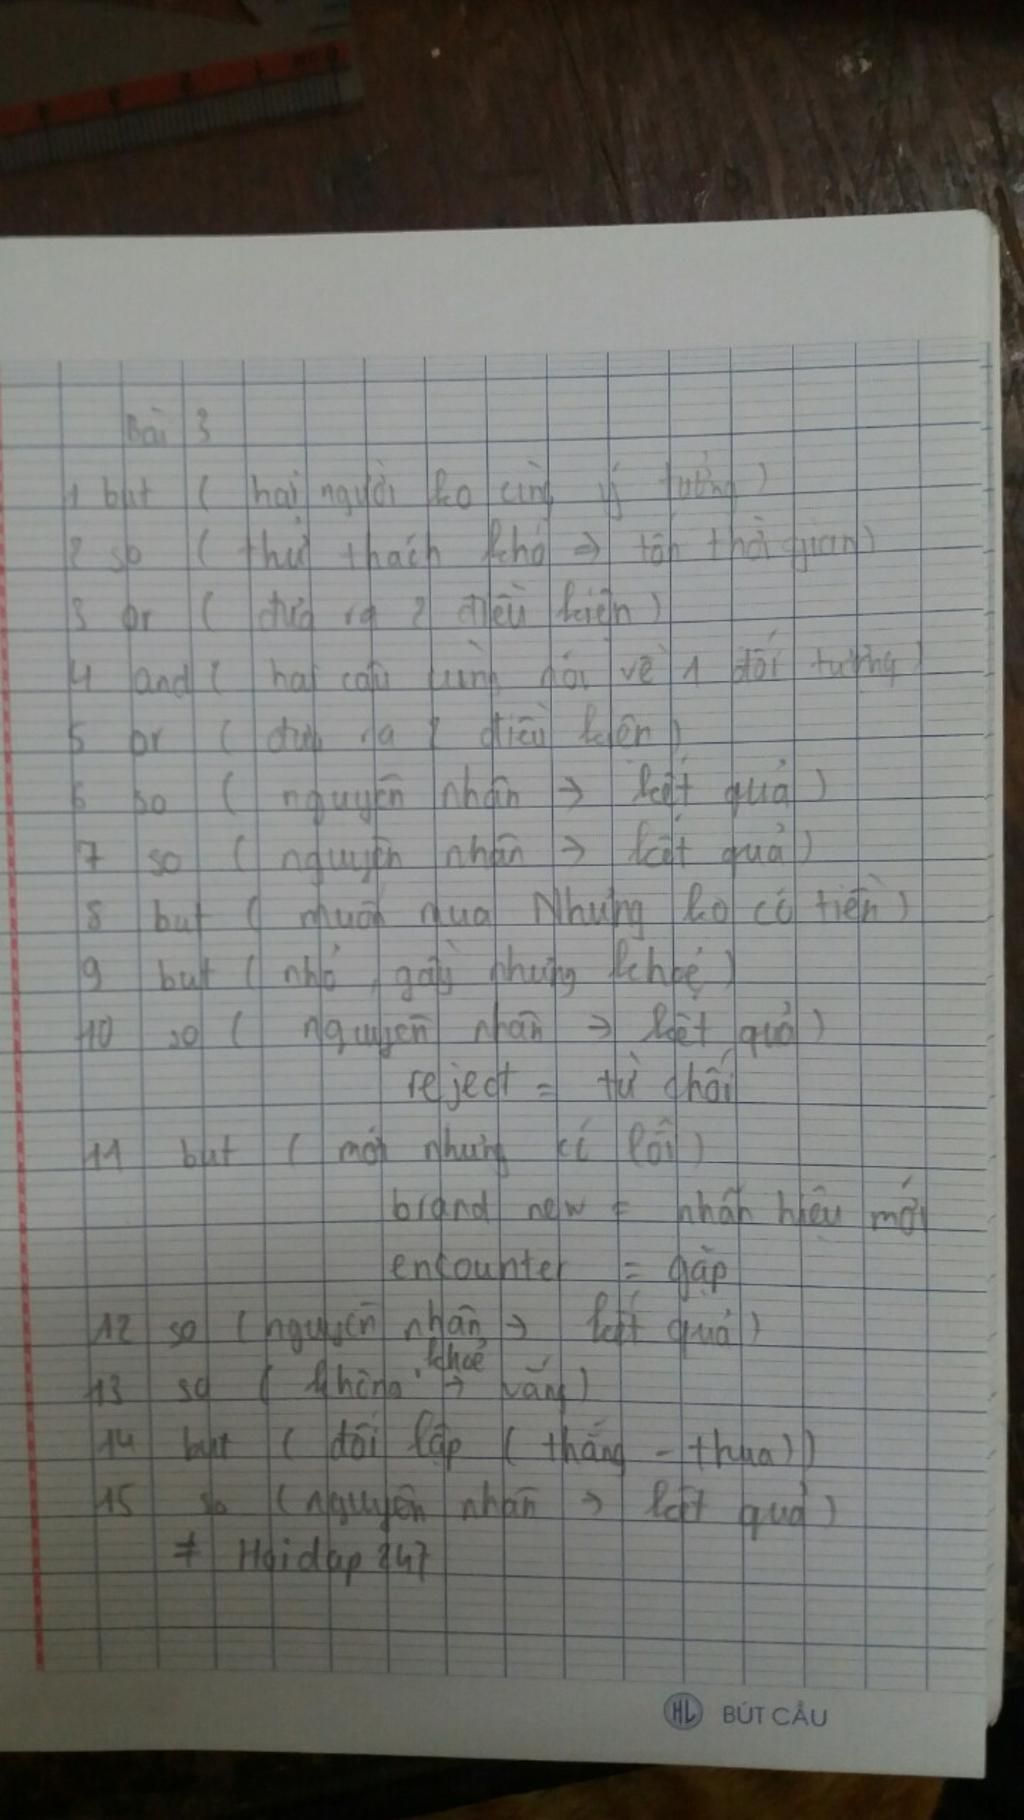 Bài 3
1 but ( hai người ko cùng ý tưởng )
2 so ( thử thách khó => tốn thời gian )
3 or ( đưa ra 2 điều kiện )
4 and ( hai câu cùng nói về 1 đối tượng )
5 or ( đưa ra 2 điều kiện )
6 so ( nguyên nhân -> kết quả )
7 so ( nguyên nhân -> kết quả )
8 but ( muốn mua Nhưng ko có tiền )
9 but ( nhỏ, gầy nhưng khoẻ )
10 so ( nguyên nhân -> kết quả )
reject = từ chối
11 but ( mới nhưng có lỗi )
brand new = nhãn hiệu mới
encounter = gặp
12 so ( nguyên nhân -> kết quả )
13 so ( không khoẻ -> vắng )
14 but ( đối lập ( thắng - thua ))
15 so ( nguyên nhân -> kết quả )
≠ Hoidap 247
HL BÚT CẦU